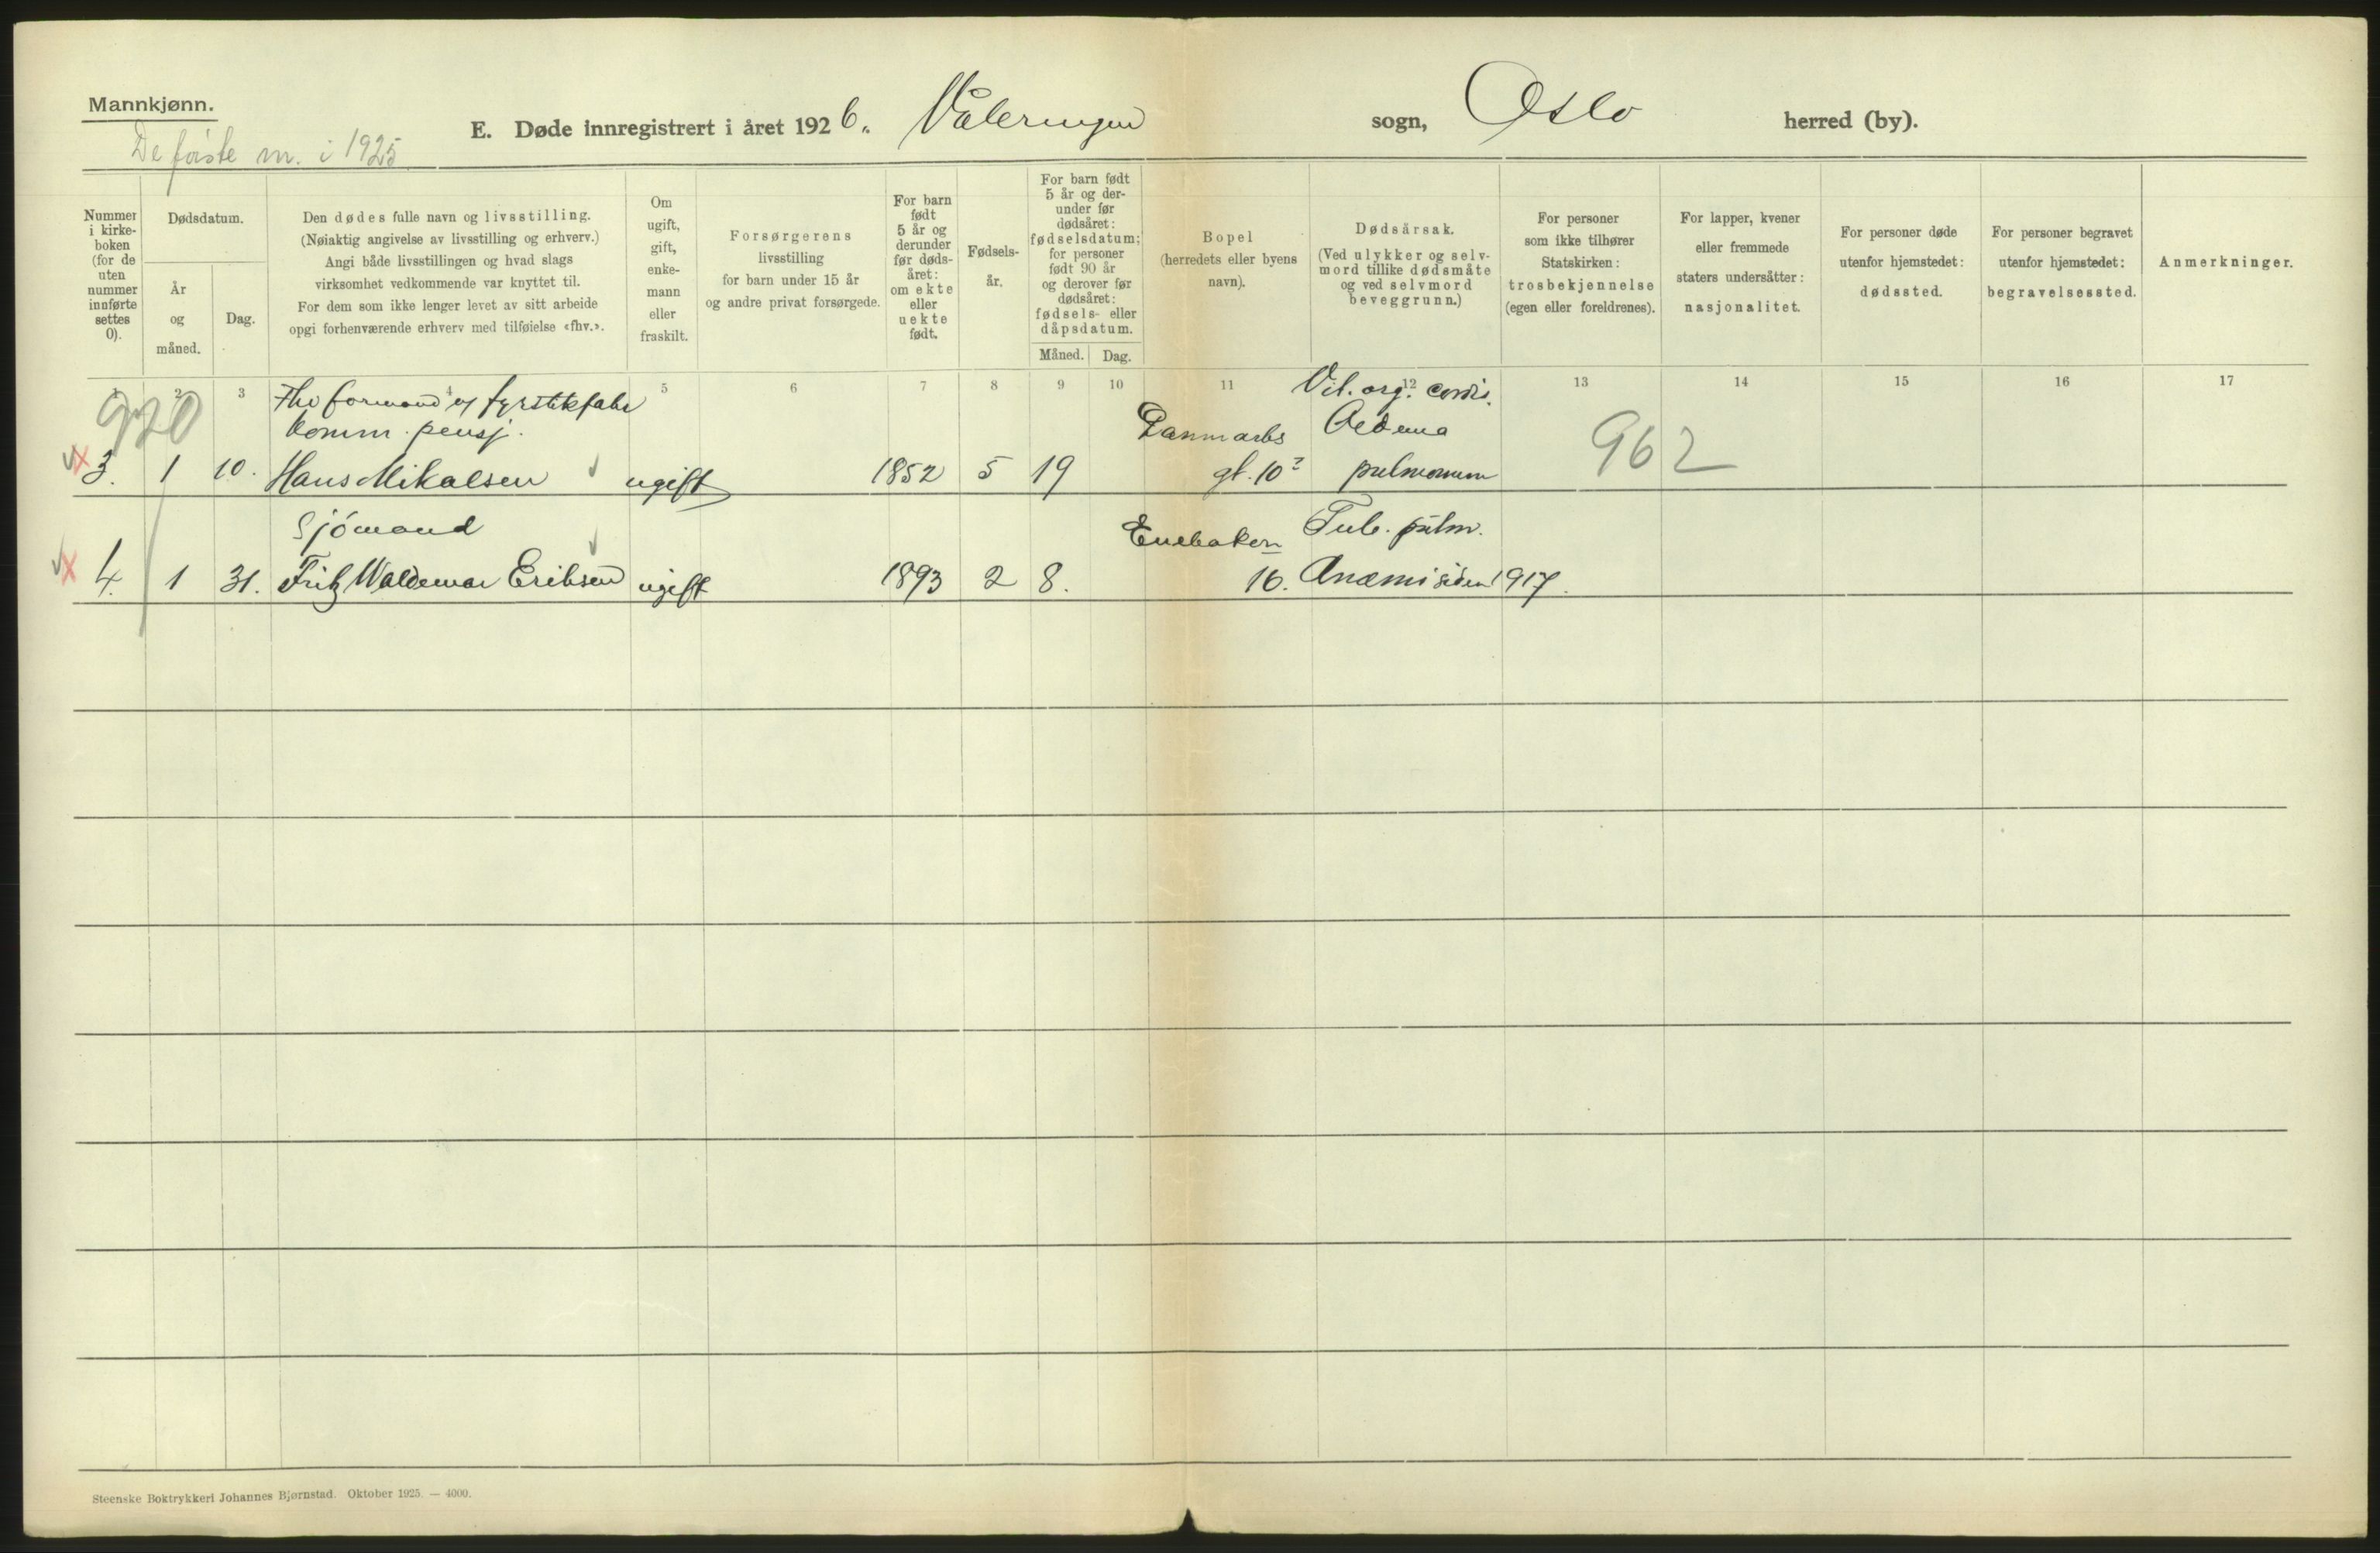 Mannkjønn.
De første m. i 1925
E. Døde innregistrert i året 1926. Våleringen sogn, Oslo herred (by).
Nummer i kirke-boken (for de uten nummer innførte settes 0).
Dødsdatum.
År og måned.
Dag.
Den dødes fulle navn og livsstilling.
(Nøiaktig angivelse av livsstilling og erhverv.)
Angi både livsstillingen og hvad slags
virksomhet vedkommende var knyttet til.
For dem som ikke lenger levet av sitt arbeide
opgi forhenværende erhverv med tilføielse «fhv.».
Om ugift, gift, enke-mann eller fraskilt.
Forsørgerens
livsstilling
for barn under 15 år
og andre privat forsørgede.
For barn født 5 år og derunder før døds-året: om ekte eller uekte født.
Fødsels-år.
For barn født 5 år og der-under før dødsåret: fødselsdatum; for personer født 90 år og derover før dødsåret: fødsels- eller dåpsdatum.
Måned. Dag.
Bopel
(herredets eller byens
navn).
Dødsårsak.
(Ved ulykker og selv-
mord tillike dødsmåte
og ved selvmord
beveggrunn.)
For personer
som ikke tilhører
Statskirken:
trosbekjennelse
(egen eller foreldrenes).
For lapper, kvener
eller fremmede
staters undersåtter:
nasjonalitet.
For personer døde
utenfor hjemstedet:
dødssted.
For personer begravet
utenfor hjemstedet:
begravelsessted.
Anmerkninger.
1 2 3 4 5 6 7 8 9 10 11 12 13 14 15 16 17
920
Fhv formand fyrstikfabr
Komm. pensj.
3. 1 10. Hans Mikalsen ugift 1852 5 19 Danmarks gt. 10 Vit. org. cordis. Oedema pulmonum
962
Sjömand
4. 1 31. Fritz Waldemar Eriksen ugift 1893 2 8. Enebakkv 16. Tub. pulm. Anæmi siden 1917.
Steenske Boktrykkeri Johannes Bjørnstad. Oktober 1925. — 4000.